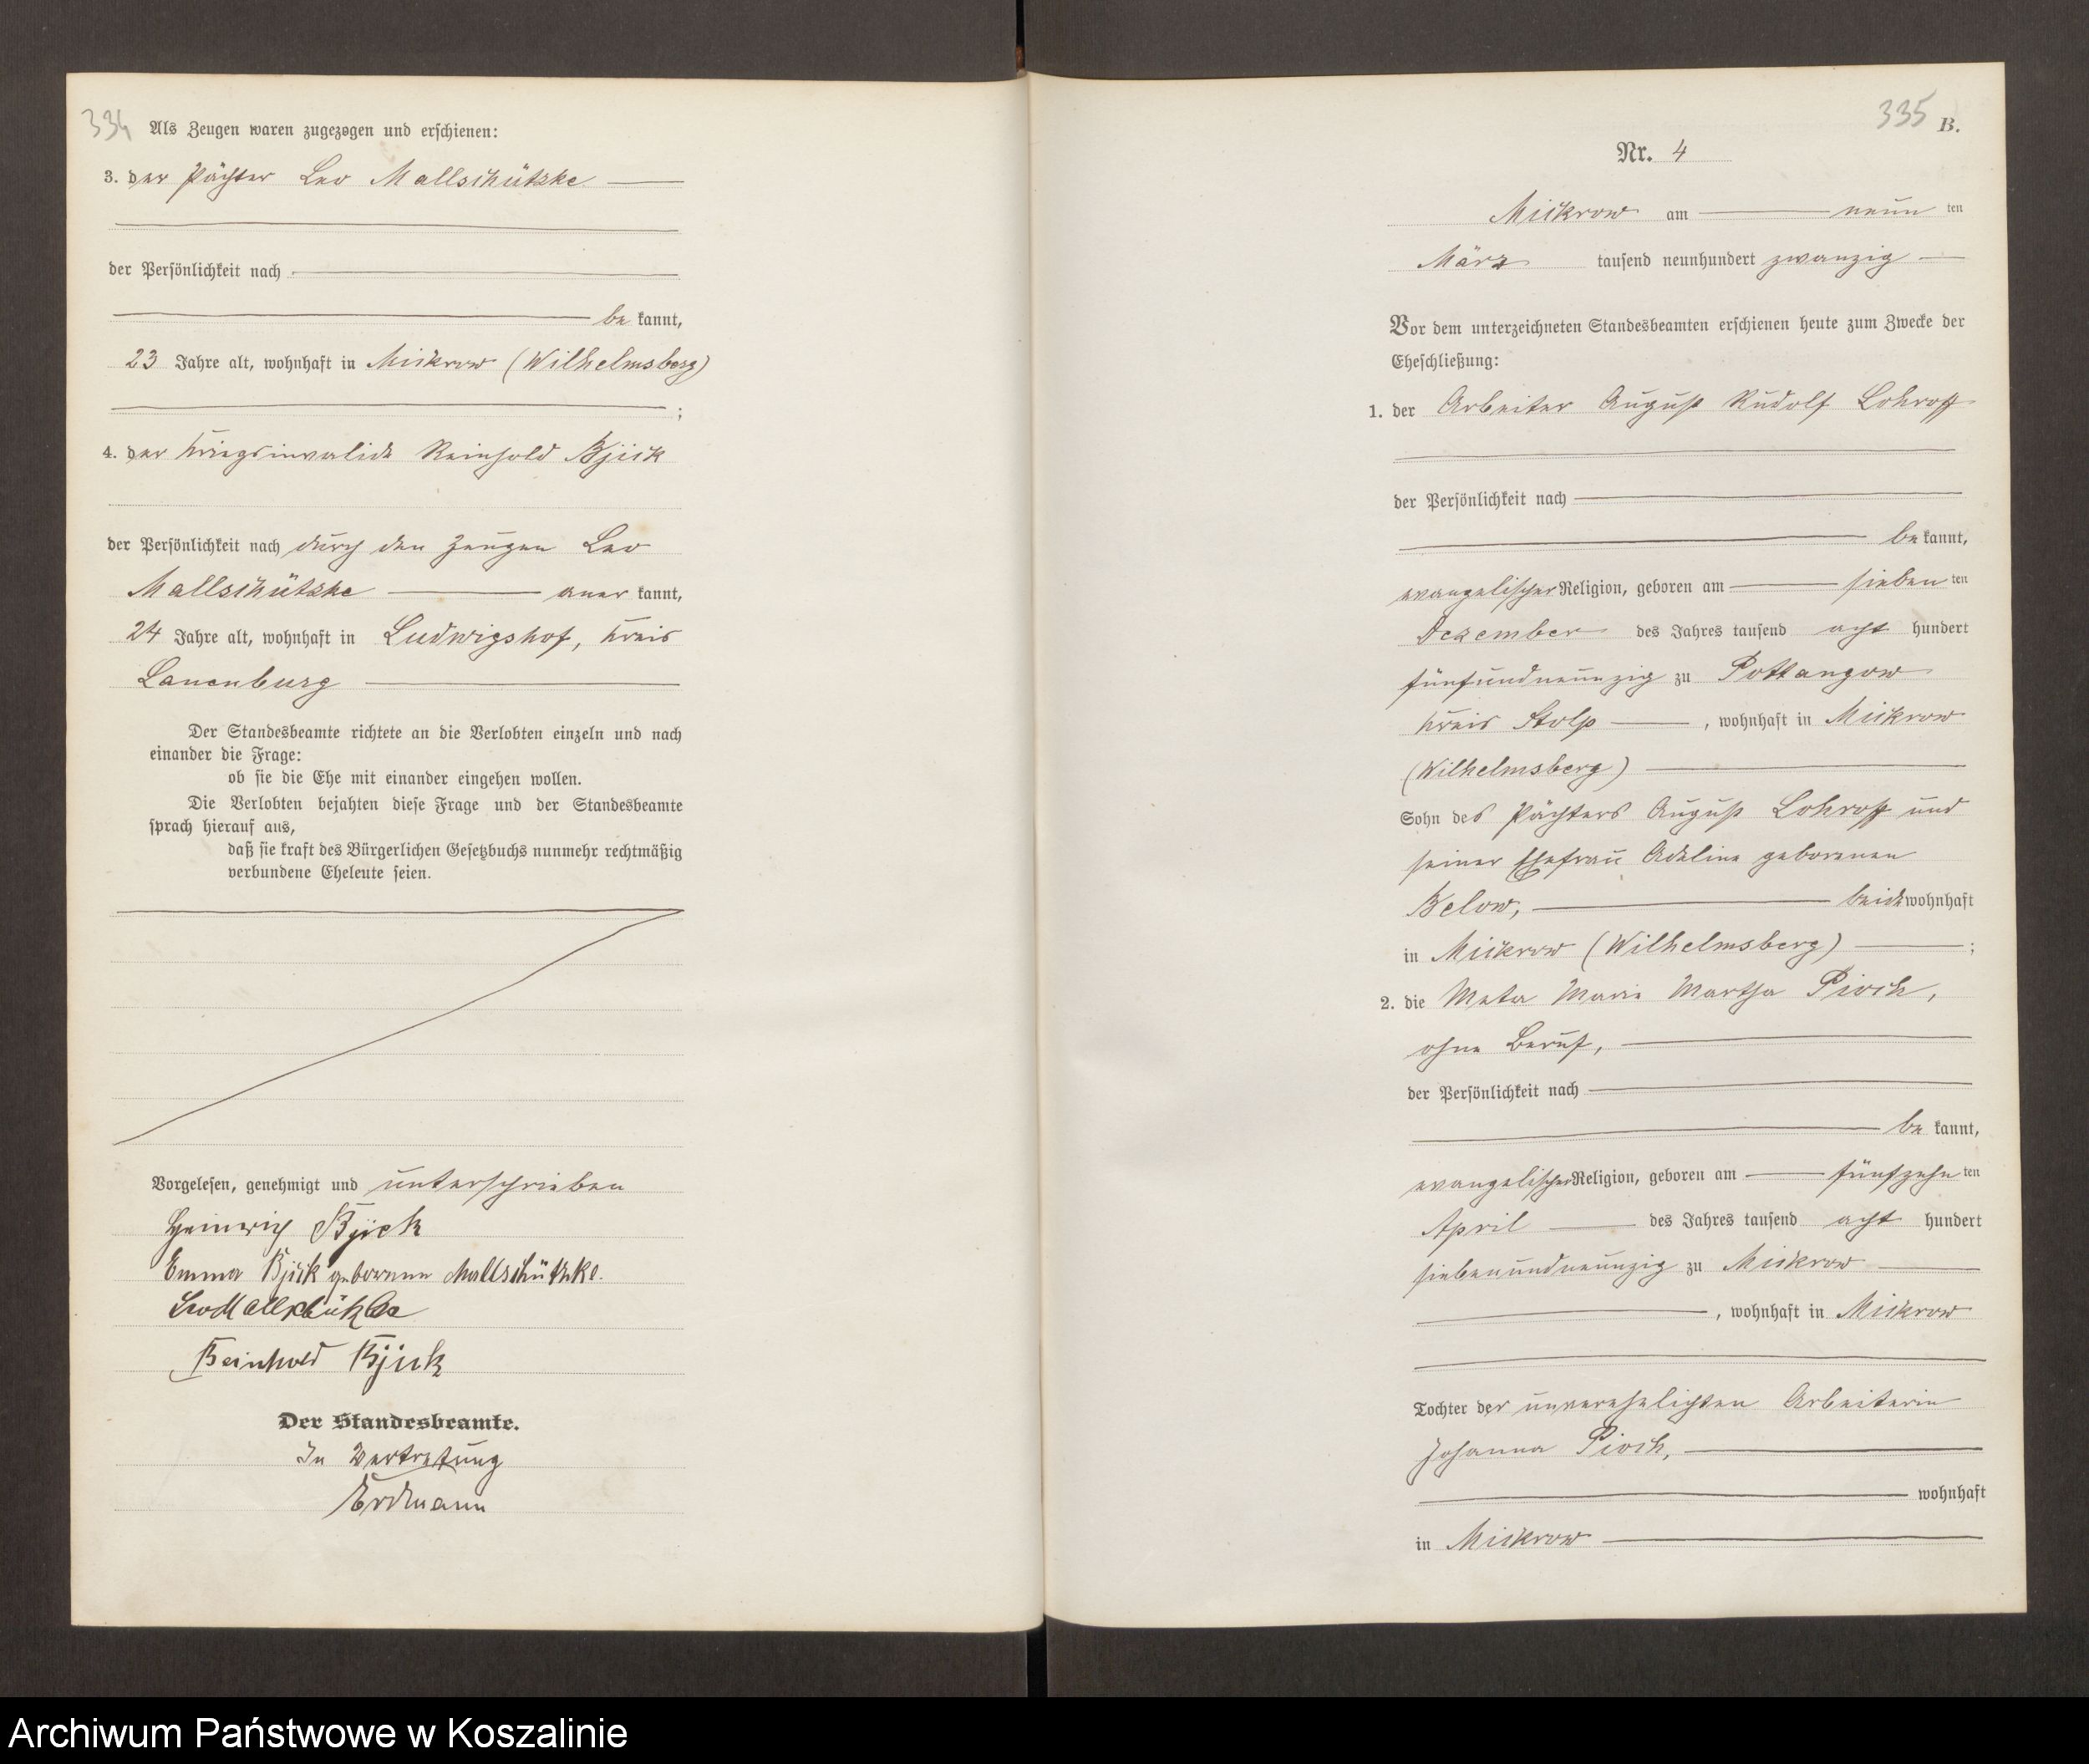 334
Als Zeugen waren zugezogen und erschienen:
3. der Pächter Leo Mallschützke
der Persönlichkeit nach
be kannt,
23 Jahre alt, wohnhaft in Mickrow (Wilhelmsberg)
;
4. der Kriegsinvalide Reinhold Bjick
der Persönlichkeit nach durch den Zeugen Leo
Mallschützke aner kannt,
24 Jahre alt, wohnhaft in Ludwigshof, Kreis
Lauenburg
Der Standesbeamte richtete an die Verlobten einzeln und nach
einander die Frage:
ob sie die Ehe mit einander eingehen wollen.
Die Verlobten bejahten diese Frage und der Standesbeamte
sprach hierauf aus,
daß sie kraft des Bürgerlichen Gesetzbuchs nunmehr rechtmäßig
verbundene Eheleute seien.
Vorgelesen, genehmigt und unterschrieben
Heinrich Bjick
Emma Bjick geborene Mallschützke.
Leo Mallschützke
Reinhold Bjick
Der Standesbeamte.
In Vertretung
Erdmann
335
B.
Nr. 4
Mickrow am neun ten
März tausend neunhundert zwanzig
Vor dem unterzeichneten Standesbeamten erschienen heute zum Zwecke der
Eheschließung:
1. der Arbeiter August Rudolf Lohroff
der Persönlichkeit nach
be kannt,
evangelischer Religion, geboren am sieben ten
Dezember des Jahres tausend acht hundert
fünfundneunzig zu Pottangow
Kreis Stolp , wohnhaft in Mickrow
(Wilhelmsberg)
Sohn des Pächters August Lohroff und
seiner Ehefrau Adeline geborenen
Below, beide wohnhaft
in Mickrow (Wilhelmsberg) ;
2. die Meta Marie Martha Pioch,
ohne Beruf,
der Persönlichkeit nach
be kannt,
evangelischer Religion, geboren am fünfzehn ten
April des Jahres tausend acht hundert
siebenundneunzig zu Mickrow
, wohnhaft in Mickrow
Tochter der unverehelichten Arbeiterin
Johanna Pioch,
wohnhaft
in Mickrow
Archiwum Państwowe w Koszalinie